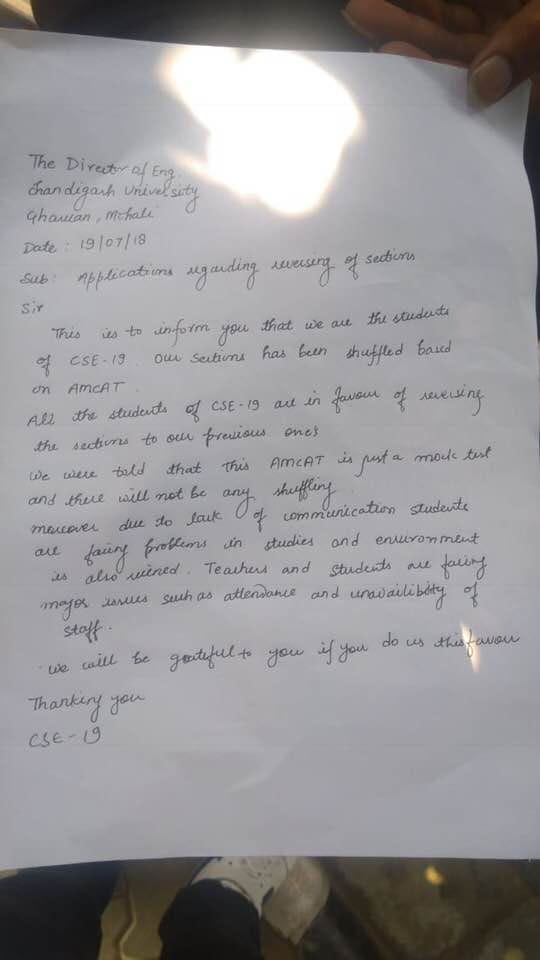 The Director of Eng.
Chandigarh University
Gharuan, Mohali
Date : 19/07/18
Sub: Applications regarding reversing of sections
Sir
This is to inform you that we are the students
of CSE-19. Our sections has been shuffled based
on AMCAT.
All the students of CSE-19 are in favour of reversing
the sections to our previous ones
We were told that this AMCAT is just a mock test
and there will not be any shuffling.
moreover due to lack of communication students
are facing problems in studies and environment
is also ruined. Teachers and students are facing
major issues such as attendance and unavailibility of
staff.
We will be grateful to you if you do us this favour
Thanking you
CSE-19